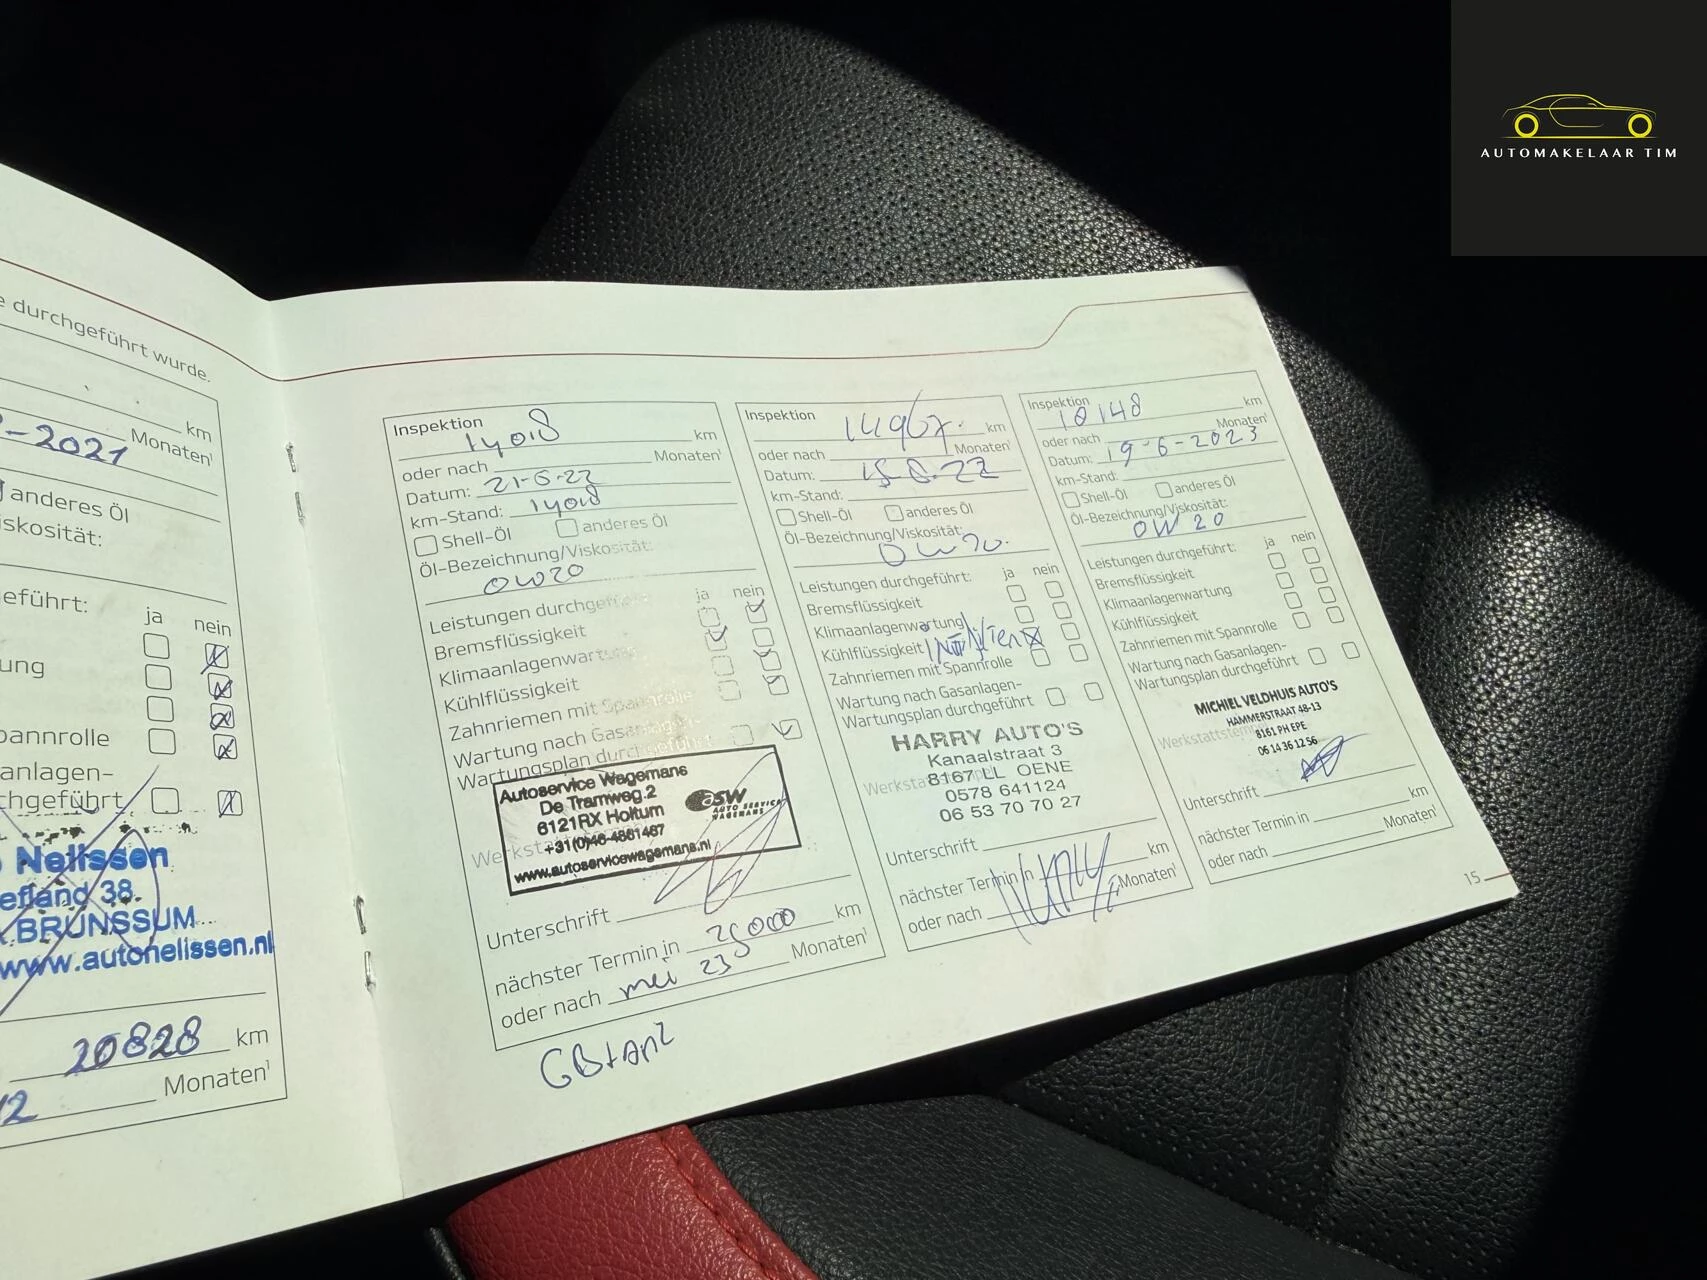 AUTOMAKELAAR TIM
durchgeführt wurde.
km
-2021 Monaten¹
anderes Öl
skosität:
eführt: ja nein
ung
pannrolle
anlagen-
chgeführt
Nelissen
efland 38
BRUNSSUM
www.autonelissen.nl
20828 km
12 Monaten¹
Inspektion 14018 km
oder nach Monaten¹
Datum: 21-6-22
km-Stand: 14018
Shell-Öl anderes Öl
Öl-Bezeichnung/Viskosität:
0W20
Leistungen durchgeführt: ja nein
Bremsflüssigkeit
Klimaanlagenwartung
Kühlflüssigkeit
Zahnriemen mit Spannrolle
Wartung nach Gasanlagen-
Wartungsplan durchgeführt
Autoservice Wagemans
De Tramweg.2
6121RX Holtum
+31(0)46-4861467
www.autoservicewagemans.nl
asw
AUTO SERVICE
WAGEMANS
Unterschrift
nächster Termin in 25000 km
oder nach mei 23 Monaten¹
Inspektion 14967. km
oder nach Monaten¹
Datum: 15.8.22
km-Stand:
Shell-Öl anderes Öl
Öl-Bezeichnung/Viskosität:
0W20.
Leistungen durchgeführt: ja nein
Bremsflüssigkeit
Klimaanlagenwartung
Kühlflüssigkeit
Zahnriemen mit Spannrolle
Wartung nach Gasanlagen-
Wartungsplan durchgeführt
HARRY AUTO'S
Kanaalstraat 3
8167 LL OENE
0578 641124
06 53 70 70 27
Unterschrift
nächster Termin in km
oder nach Monaten¹
Inspektion 18148 km
oder nach Monaten¹
Datum: 19-6-2023
km-Stand:
Shell-Öl anderes Öl
Öl-Bezeichnung/Viskosität:
0W20
Leistungen durchgeführt: ja nein
Bremsflüssigkeit
Klimaanlagenwartung
Kühlflüssigkeit
Zahnriemen mit Spannrolle
Wartung nach Gasanlagen-
Wartungsplan durchgeführt
MICHIEL VELDHUIS AUTO'S
HAMMERSTRAAT 48-13
8161 PH EPE
06 14 36 12 56
Unterschrift
nächster Termin in km
oder nach Monaten¹
15